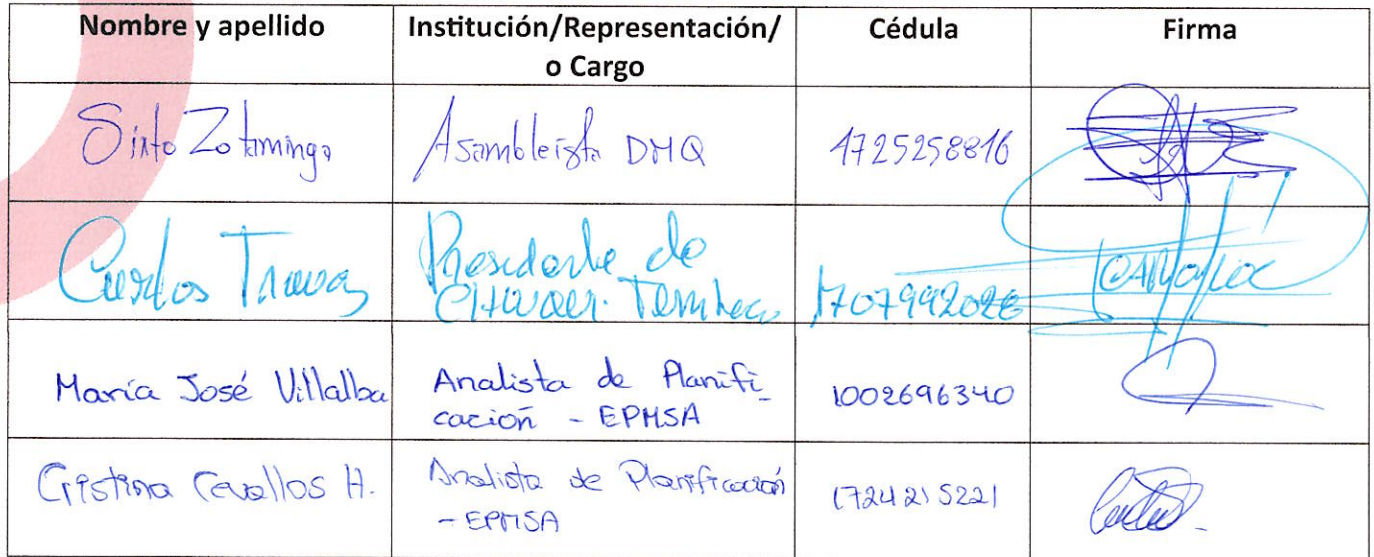 Nombre y apellido
Institución/Representación/
o Cargo
Cédula
Firma
Sixto Zotaminga
Asambleista DMQ
1725258816
Carlos
Presidente de
1707992028
María José Villalba
Analista de Planifi_
cación - EPMSA
1002696340
Cristina Cevallos H.
Analista de Planificación
- EPMSA
1724215221